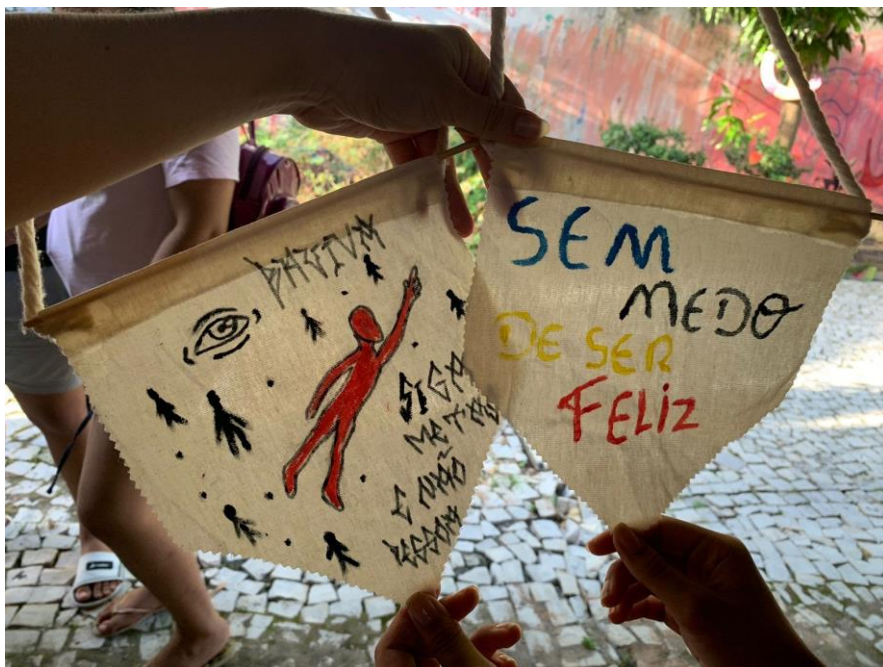 SIGA
METAS
E NÃO
SEM
MEDO
DE SER
FELIZ